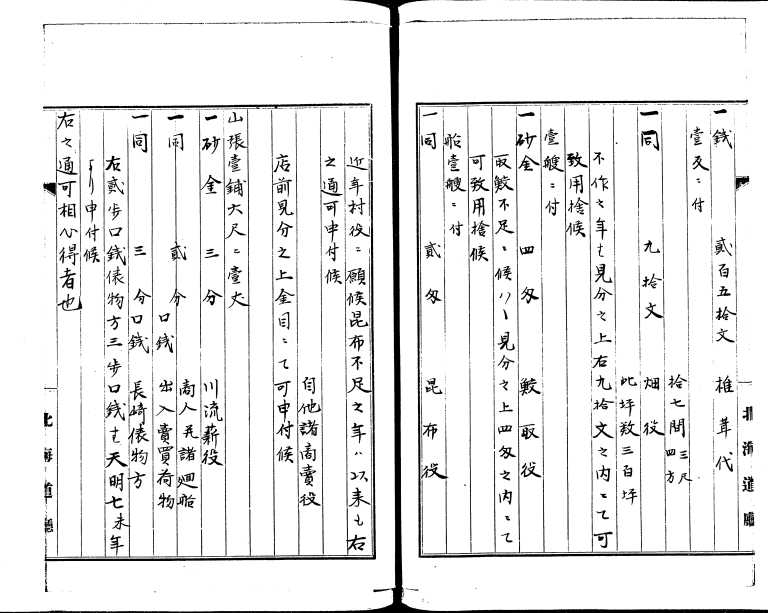 一錢　貳百五拾文　椎茸代
壹歹ニ付
拾七間三尺四方
一同　九拾文　畑役
此坪数三百坪
不作之年も見分之上右九拾文之内ニて可
致用捨候
壹艘ニ付
一砂金　四匁　鮫取役
取鮫不足ニ候ハヽ見分之上四匁之内ニて
可致用捨候
船壹艘ニ付
一同　貳匁　昆布役
北海道廳
近年村役ニ願候昆布不足之年ハ以来も右
之通可申付候
自他諸商賣役
店前見分之上金目ニて可申付候
山張壹鋪大尺ニ壹丈
一砂金　三分　川流薪役
一同　貳分　口錢　商人并諸廻船出入賣買荷物
一同　三分口錢　長崎俵物方
右貳歩口錢俵物方三歩口錢も天明七未年
より申付候
右之通可相心得者也
北海道廳